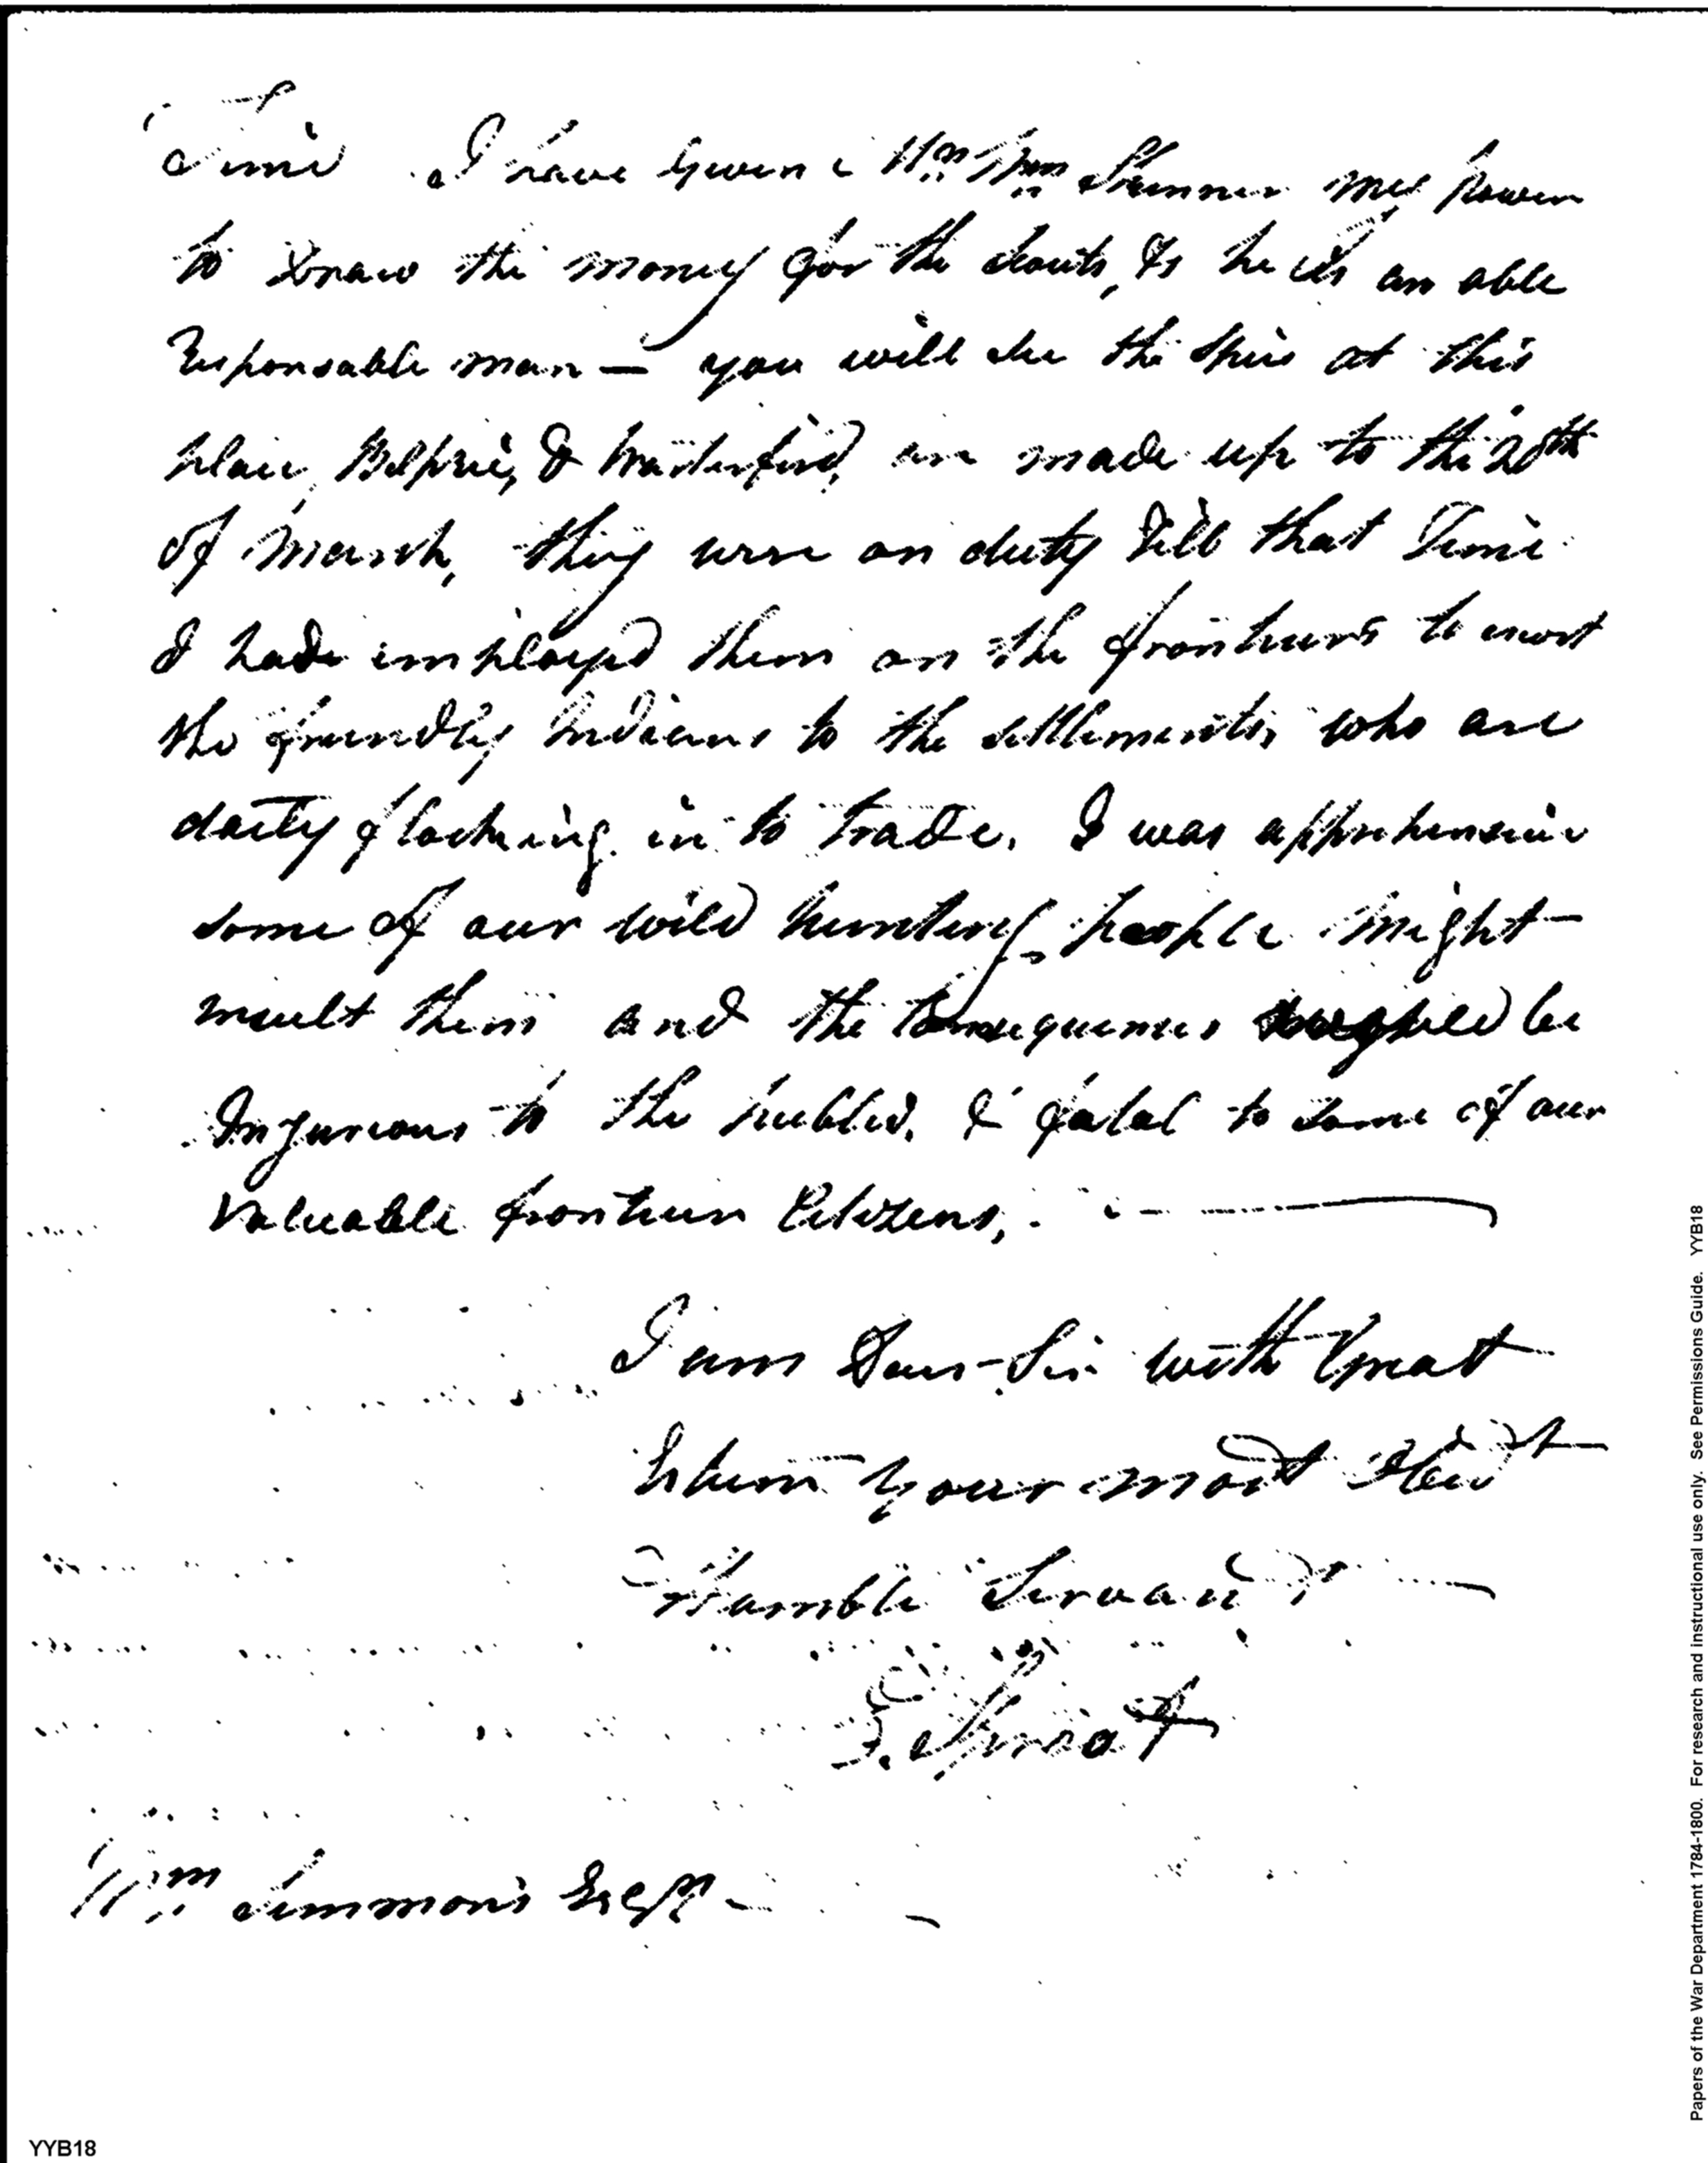 Time I have given Mr. Wm Skinner my power
to Draw the money for the scouts, As he is an able
Responsable man — you will see the Spies at this
place, Belprie, & Waterford, are made up to the 20th
of March, they were on duty till that Time
I hade imployed them on the frontiers to escort
the friendly Indians to the settlements, who are
daity flocking in to trade. I was apprehensive
some of our wild hunting people might
insult them and the Consequences be
Injurious to the Publick, & fatal to some of our
valuable frontier Citizens,
I am Dear Sir with Great
Esteem your most Obedt
Humble Servant
E. Sproat
Wm Simmons Esqr
Papers of the War Department 1784-1800. For research and instructional use only. See Permissions Guide. YYB18
YYB18